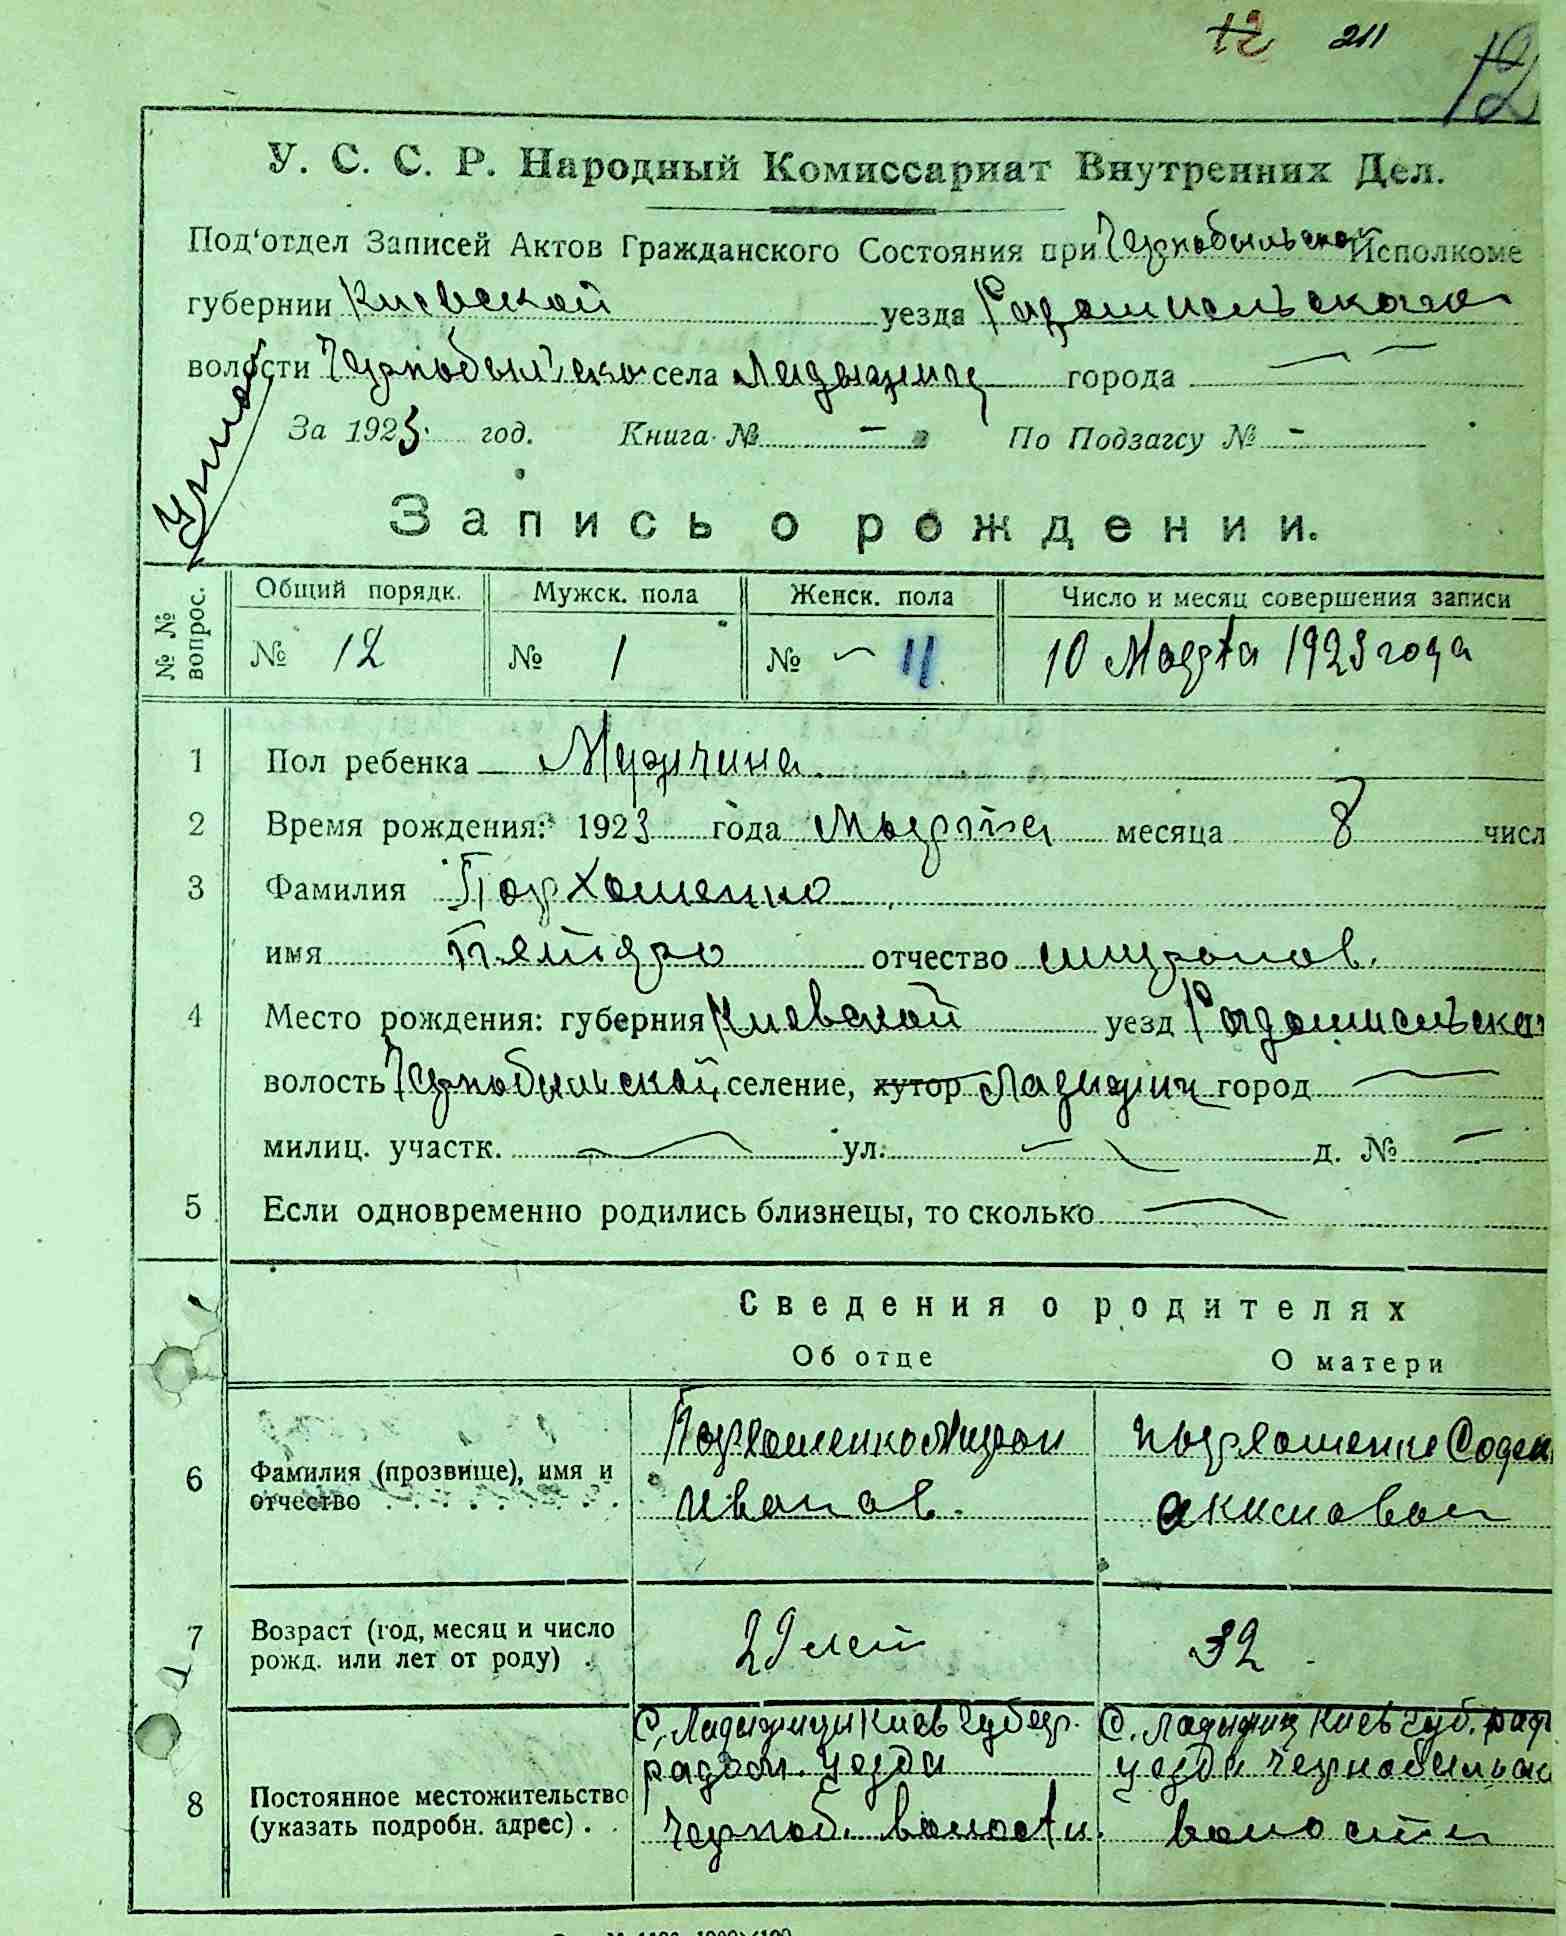 12 211 12
У. С. С. Р. Народный Комиссариат Внутренних Дел.
Под'отдел Записей Актов Гражданского Состояния при Чернобыльском Исполкоме
губернии Киевской уезда Радомисльского
волости Чернобыльско села Ладыжич города —
За 1923 год. Книга № — По Подзагсу № -
Запись о рождении.
№ № вопрос. Общий порядк. Мужск. пола Женск. пола Число и месяц совершения записи
№ 12 № 1 № — 11 10 Марта 1923 года
1 Пол ребенка Мужчина
2 Время рождения: 1923 года Марта месяца 8 числ
3 Фамилия Пархоменко
имя отчество Миронов.
4 Место рождения: губерния Киевской уезд Радомисльска
волость Чернобыльской селение, хутор Ладижич город —
милиц. участк. — ул. — д. № —
5 Если одновременно родились близнецы, то сколько —
Сведения о родителях
Об отце О матери
6 Фамилия (прозвище), имя и отчество
Пархоменко Мирон
Иванов.
Пархоменко
акимовая
7 Возраст (год, месяц и число рожд. или лет от роду) .
29 лет 32
8 Постоянное местожительство (указать подробн. адрес) . .
С. Ладижичи Киев Губер.
радом. уезда
черноб. волости.
С. Ладижич Киев губ. рад
уезда чернобильск
волости